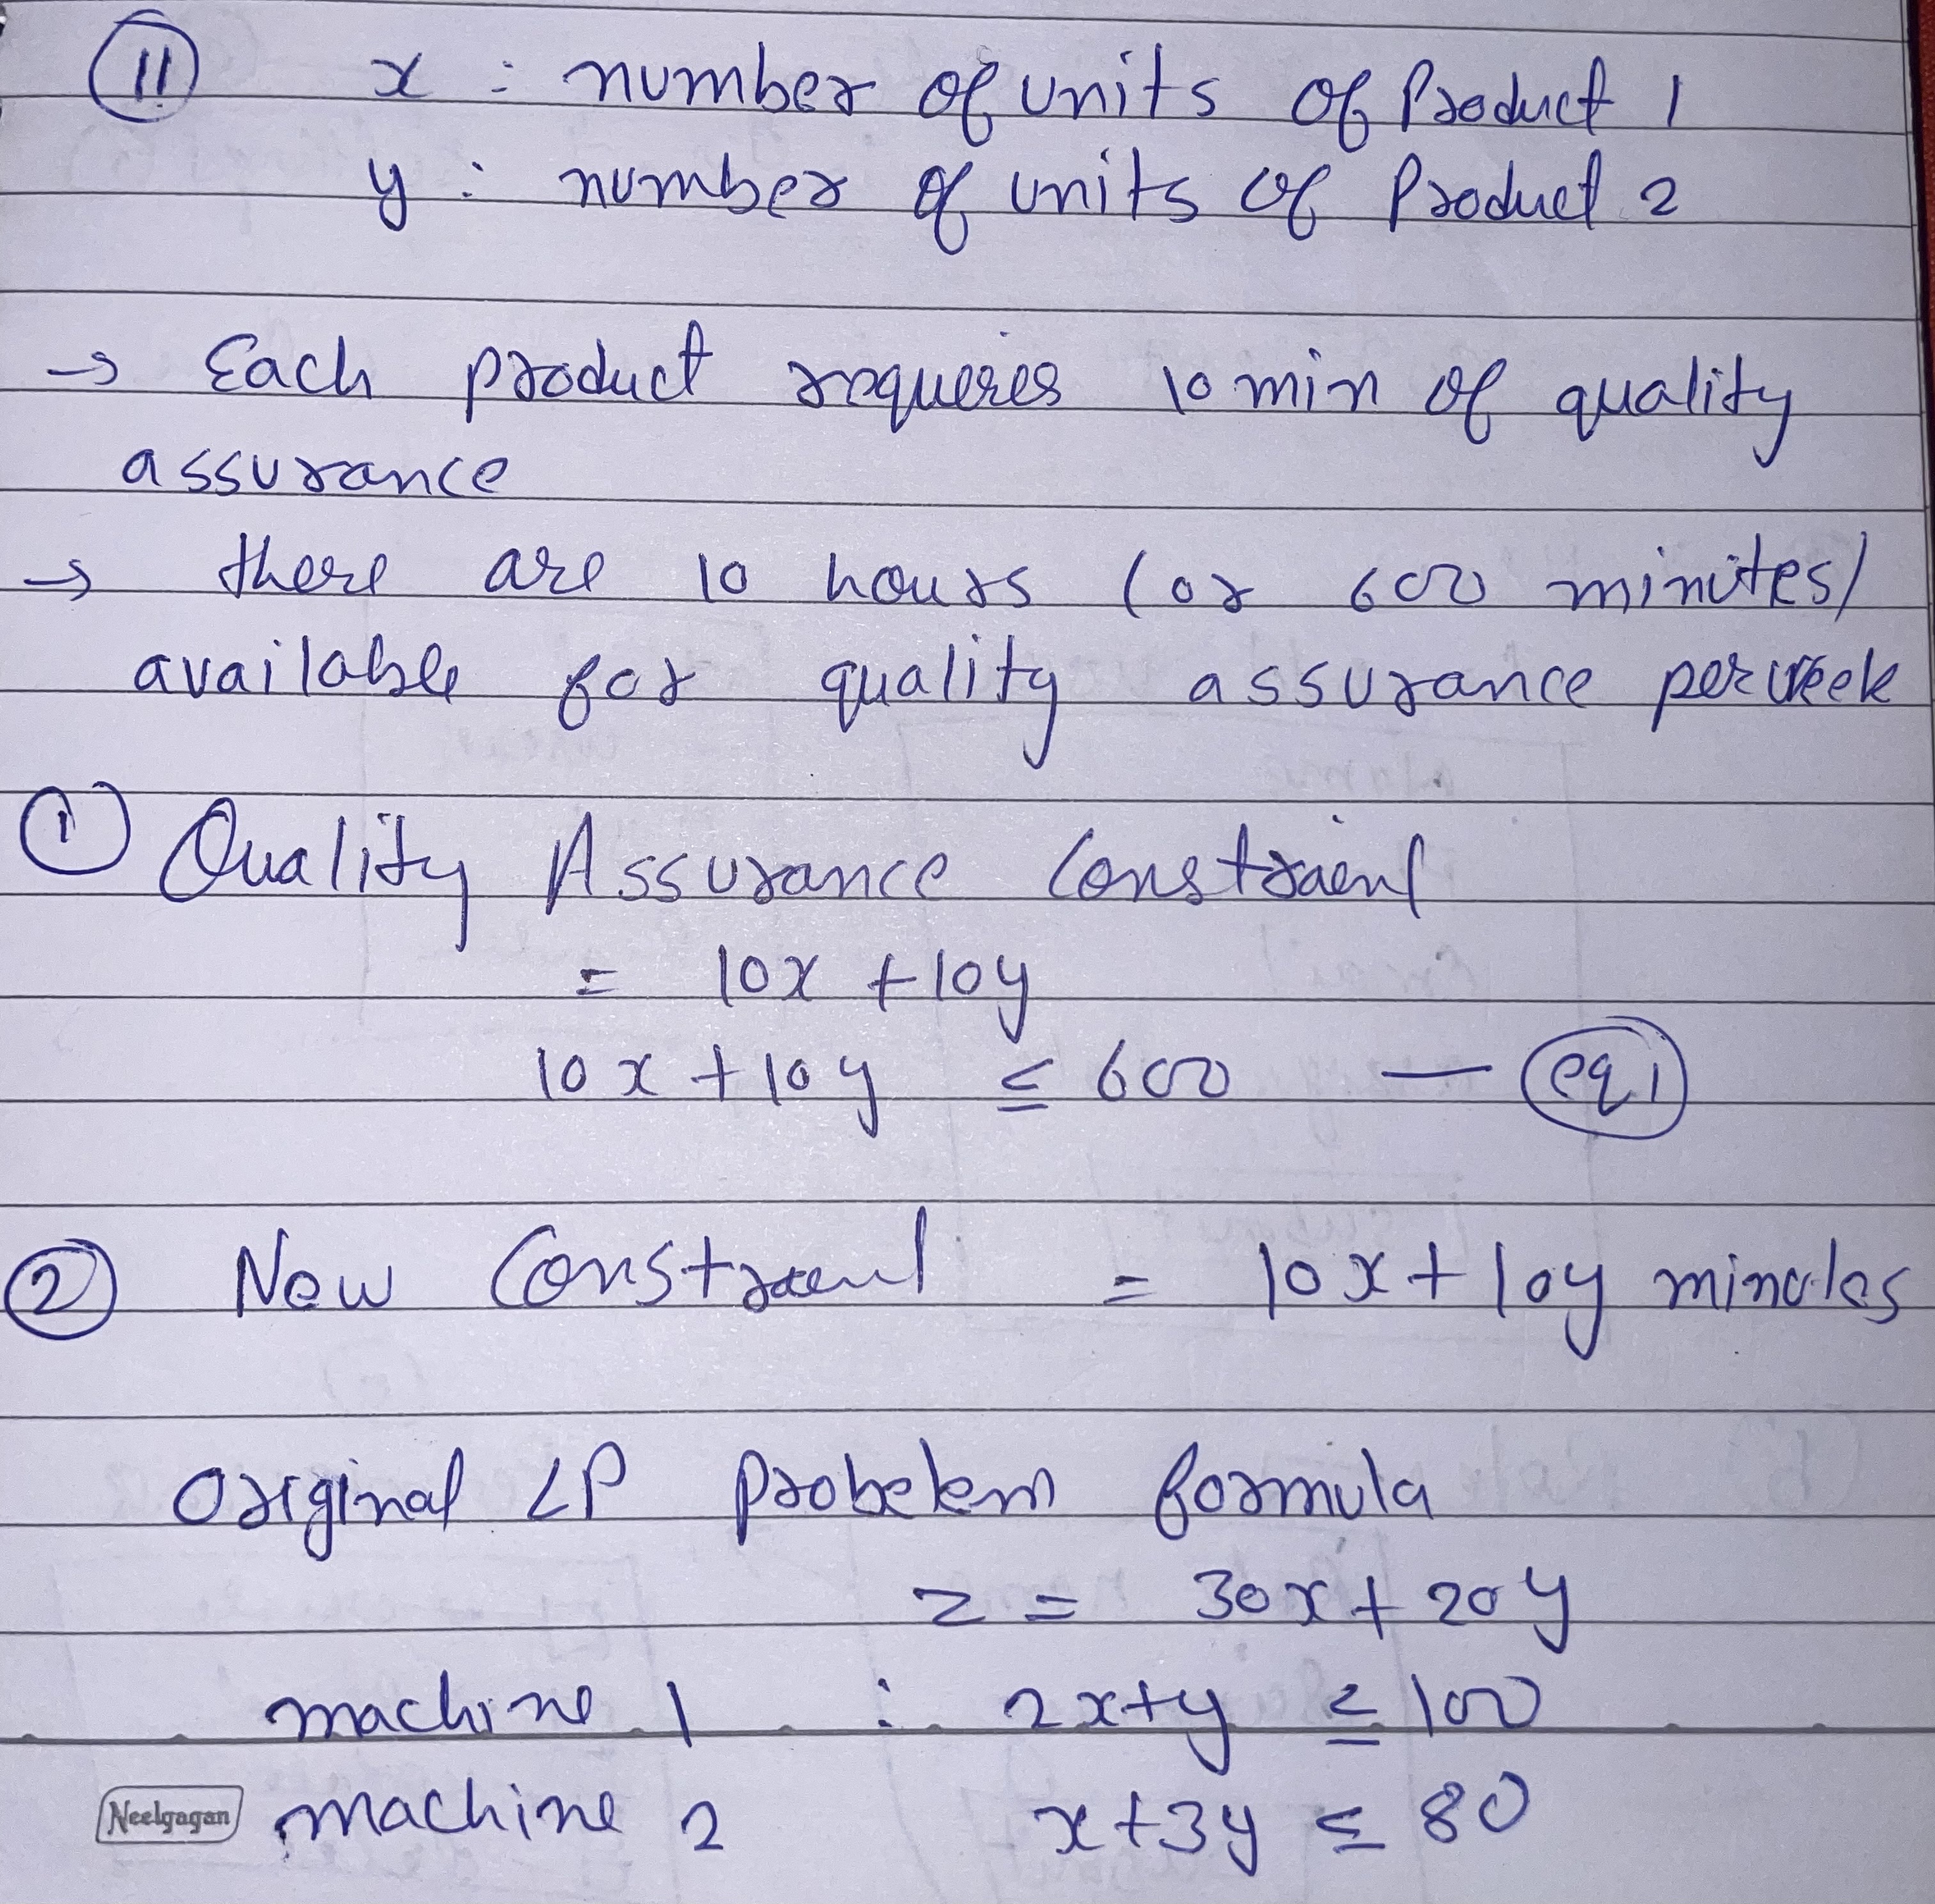 11 x : number of units of Product 1
y : number of units of Product 2
→ Each product requeres 10 min of quality
assurance
→ there are 10 hours (or 600 minites)
available for quality assurance per week
① Quality Assurance Constraent
= 10x + 10y
10x + 10y ≤ 600 — eq 1
② New Constraent = 10x + 10y minutes
Original LP probelem formula
z = 30x + 20y
machine 1 : 2x+y ≤ 100
Neelgagan machine 2 x+3y ≤ 80